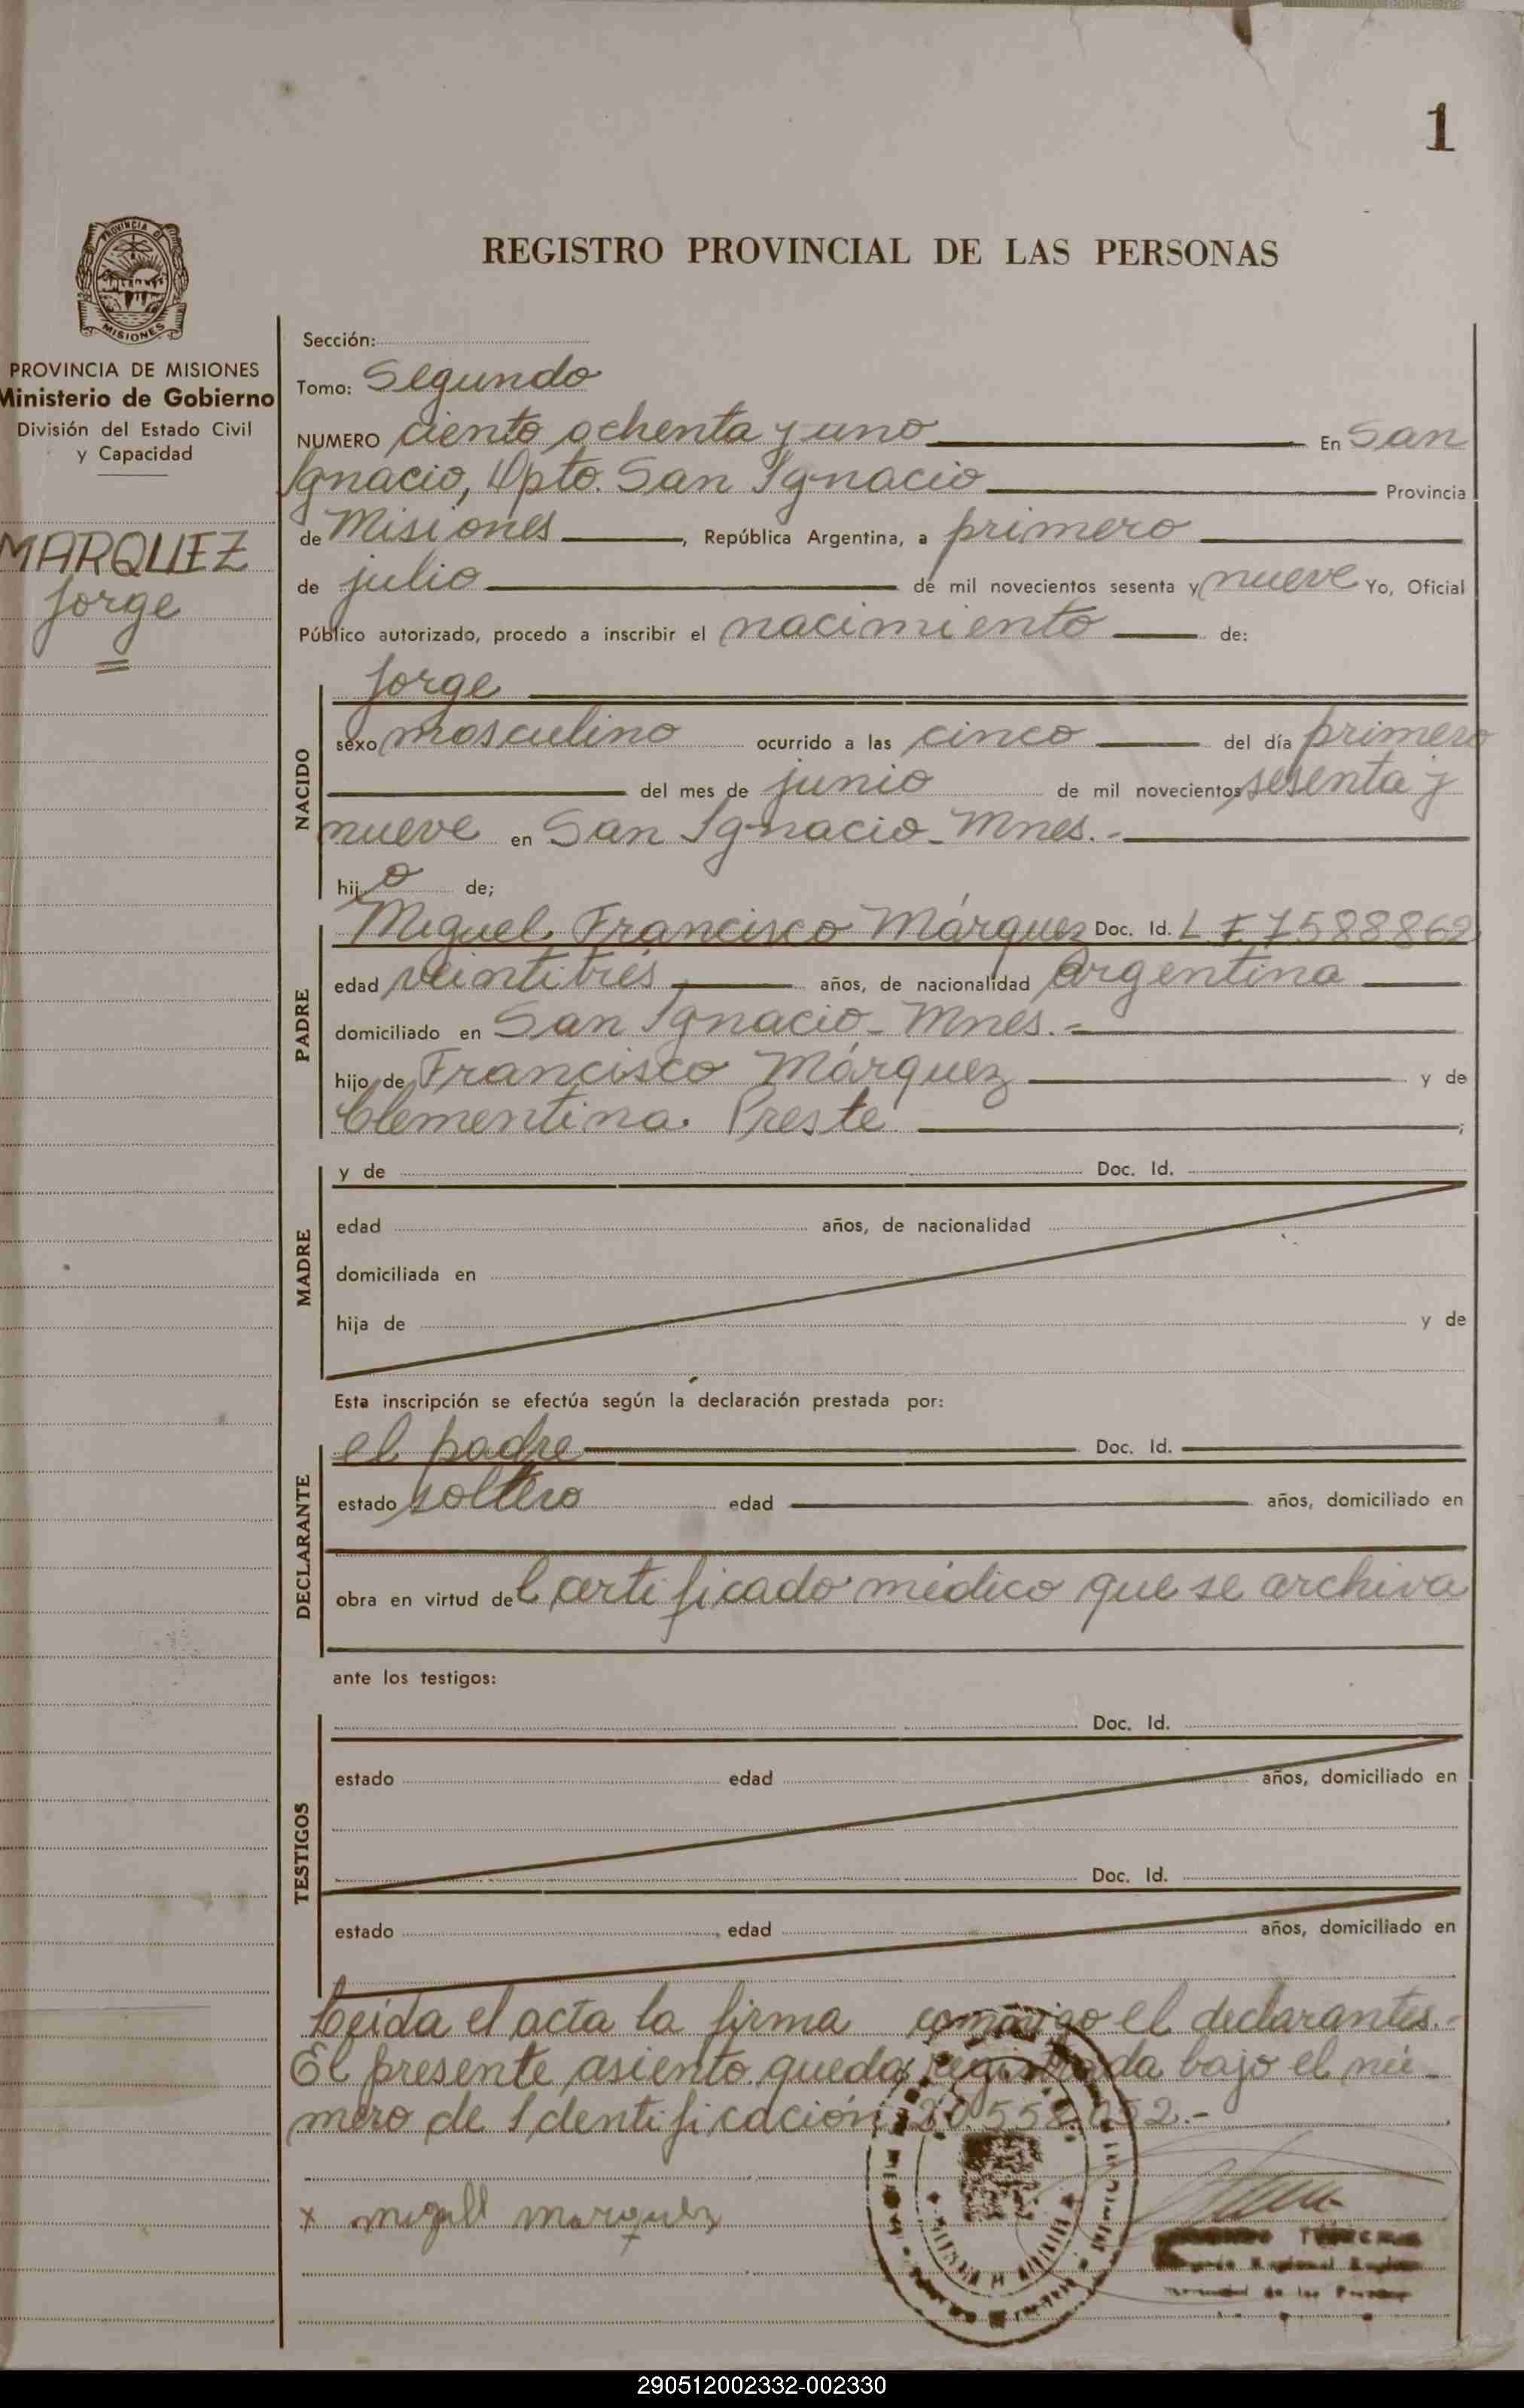 1
REGISTRO PROVINCIAL DE LAS PERSONAS
PROVINCIA DE
MISIONES
PROVINCIA DE MISIONES
Ministerio de Gobierno
División del Estado Civil
y Capacidad
MARQUEZ
Jorge
Sección:
Tomo: Segundo
NUMERO ciento ochenta y uno En San
Ignacio, Dpto. San Ignacio Provincia
de Misiones, República Argentina, a primero
de julio de mil novecientos sesenta y nueve Yo, Oficial
Público autorizado, procedo a inscribir el nacimiento de:
NACIDO
Jorge
sexo masculino ocurrido a las cinco del día primero
del mes de junio de mil novecientos sesenta y
nueve en San Ignacio - Mnes.-
hijo de;
PADRE
Miguel Francisco Márquez Doc. Id. L.E. 7588862
edad veintitrés años, de nacionalidad Argentina
domiciliado en San Ignacio - Mnes.-
hijo de Francisco Márquez y de
Clementina Preste ;
MADRE
y de Doc. Id.
edad años, de nacionalidad
domiciliada en
hija de y de
Esta inscripción se efectúa según la declaración prestada por:
DECLARANTE
el padre Doc. Id.
estado soltero edad años, domiciliado en
obra en virtud del certificado médico que se archiva
ante los testigos:
TESTIGOS
Doc. Id.
estado edad años, domiciliado en
Doc. Id.
estado edad años, domiciliado en
Leida el acta la firma conmigo el declarantes.-
El presente asiento queda registrada bajo el nú-
mero de Identificación: 20.558.052.-
x miguel marquez
290512002332-002330